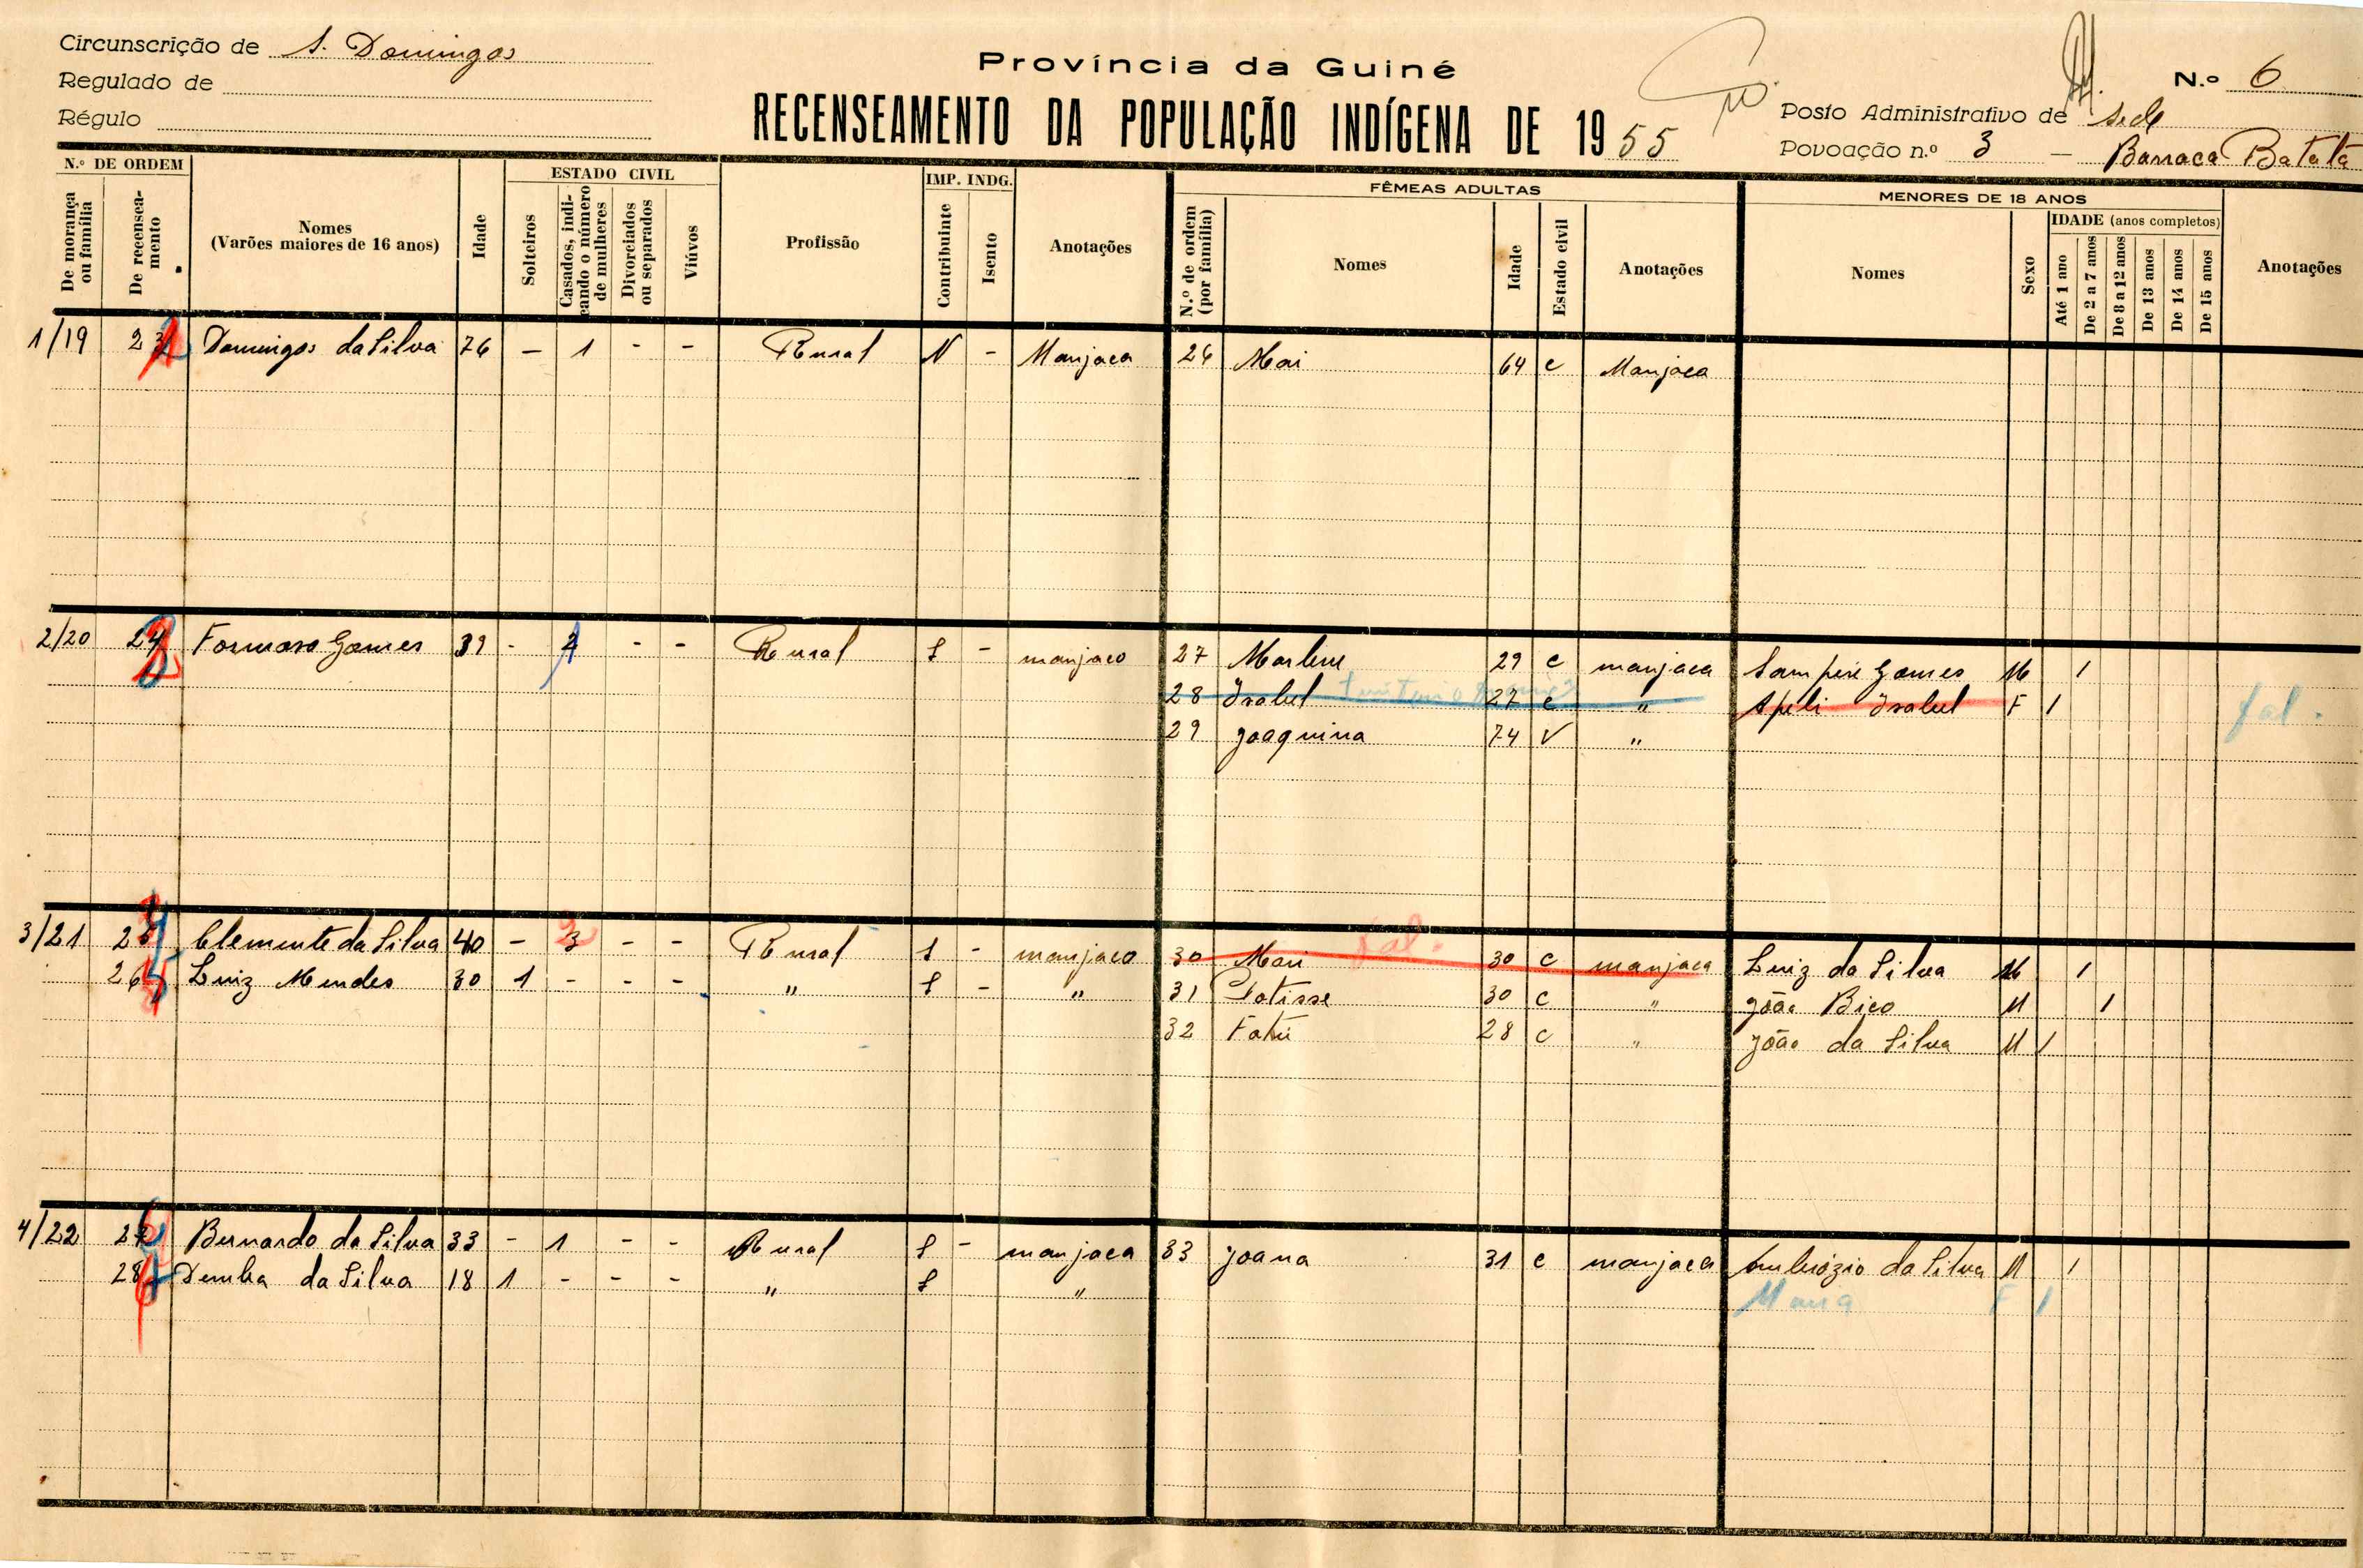 Circunscrição de S. Domingos
Regulado de
Régulo
Província da Guiné
RECENSEAMENTO DA POPULAÇÃO INDÍGENA DE 1955
N.º 6
Posto Administrativo de Sede
Povoação n.º 3 — Barraca Batata
N.º DE ORDEM
De morança ou família
De recenseamento
Nomes
(Varões maiores de 16 anos)
Idade
ESTADO CIVIL
Solteiros
Casados, indicando o número de mulheres
Divorciados ou separados
Viúvos
Profissão
IMP. INDG.
Contribuinte
Isento
Anotações
FÊMEAS ADULTAS
N.º de ordem (por família)
Nomes
Idade
Estado civil
Anotações
MENORES DE 18 ANOS
Nomes
Sexo
IDADE (anos completos)
Até 1 ano
De 2 a 7 anos
De 8 a 12 anos
De 13 anos
De 14 anos
De 15 anos
Anotações
1/19 23 Domingos da Silva 76 - 1 - - Rural N - Manjaca 26 Mai 64 c Manjaca
2/20 24 Formoso Gomes 39 - 2 - - Rural S - manjaco 27 Marlene 29 c manjaca Sampere Gomes M 1
28 Isabel 27 c " Apeli Isabel F 1 fal.
29 Joaquina 74 V "
3/21 25 Clemente da Silva 40 - 3 - - Rural S - manjaco 30 Mari fal. 30 c manjaca Luiz da Silva M 1
26 Luiz Mendes 30 1 - - - " S - " 31 Potisse 30 c " João Bico M 1
32 Fatú 28 c " João da Silva M 1
4/22 27 Bernardo da Silva 33 - 1 - - Rural S - manjaca 33 Joana 31 c manjaca Ambrózio da Silva M 1
28 Demba da Silva 18 1 - - - " S " Maria F 1